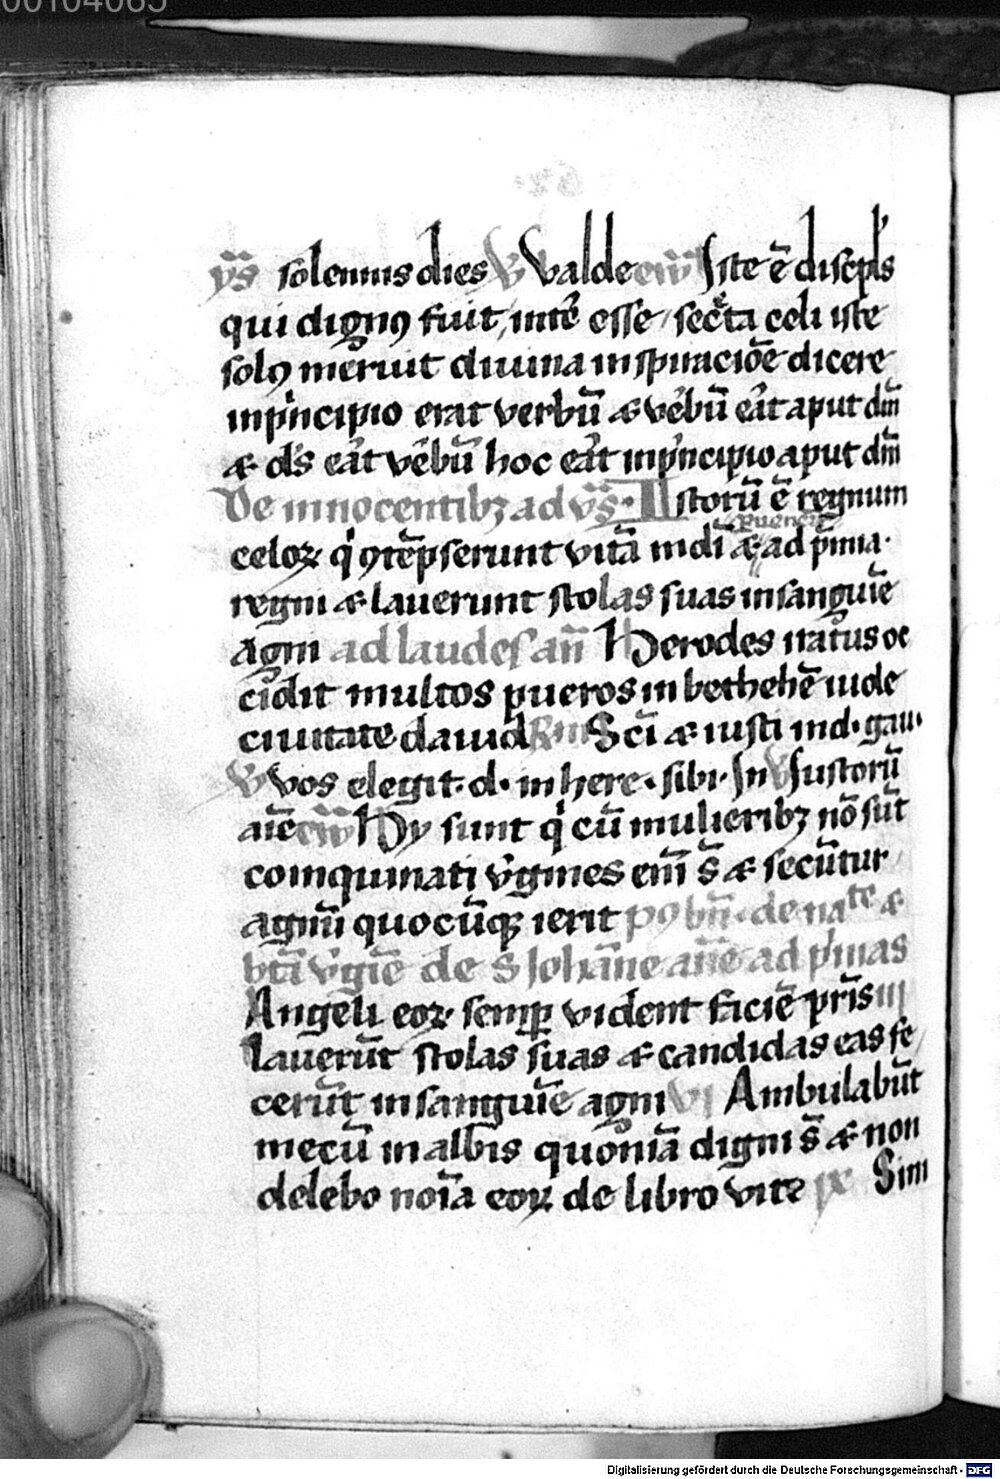 00104065
ys̄ solemnis dies V Valde ew̄ Iste ē discipl's
qui dignꝯ fuit int̄ esse sec̄ta celi iste
solꝯ meruit diuina inspiraciōe dicere
inp'ncipio erat verbū & v̄bū eāt aput dm̄
& ds̄ eāt v̄bū hoc eāt inp'ncipio aput dm̄
De innocentibꝫ ad vs̄. Istorū ē regnum
celoꝝ qͥ ꝯtēpserunt vitā mdi & ad p̄mia
regni & lauerunt stolas suas insanguīe
agni ad laudes an̄ Herodes iratus oc
cidit multos pueros in bethehē iude
ciuitate dauid Sc̄i & iusti ind. gau.
V Vos elegit. d. in here. sibi. In V Iustorū
aīe ew̄ Hy sunt qͥ cū mulieribꝫ nō sūt
coinquinati v̄gines enī s̄ & secūtur
agnū quocūqꝫ ierit ps bn̄. de nate &
btā v̄gīe de S Iohāne an̄e ad p'mas
Angeli eoꝝ semꝑ vident faciē pr̄is iii
Lauerūt stolas suas & candidas eas fe
cerūt insanguīe agni vi Ambulabūt
mecū in albis quoniā digni s̄ & non
delebo noīa eoꝝ de libro vite ix Sim
Digitalisierung gefördert durch die Deutsche Forschungsgemeinschaft - DFG